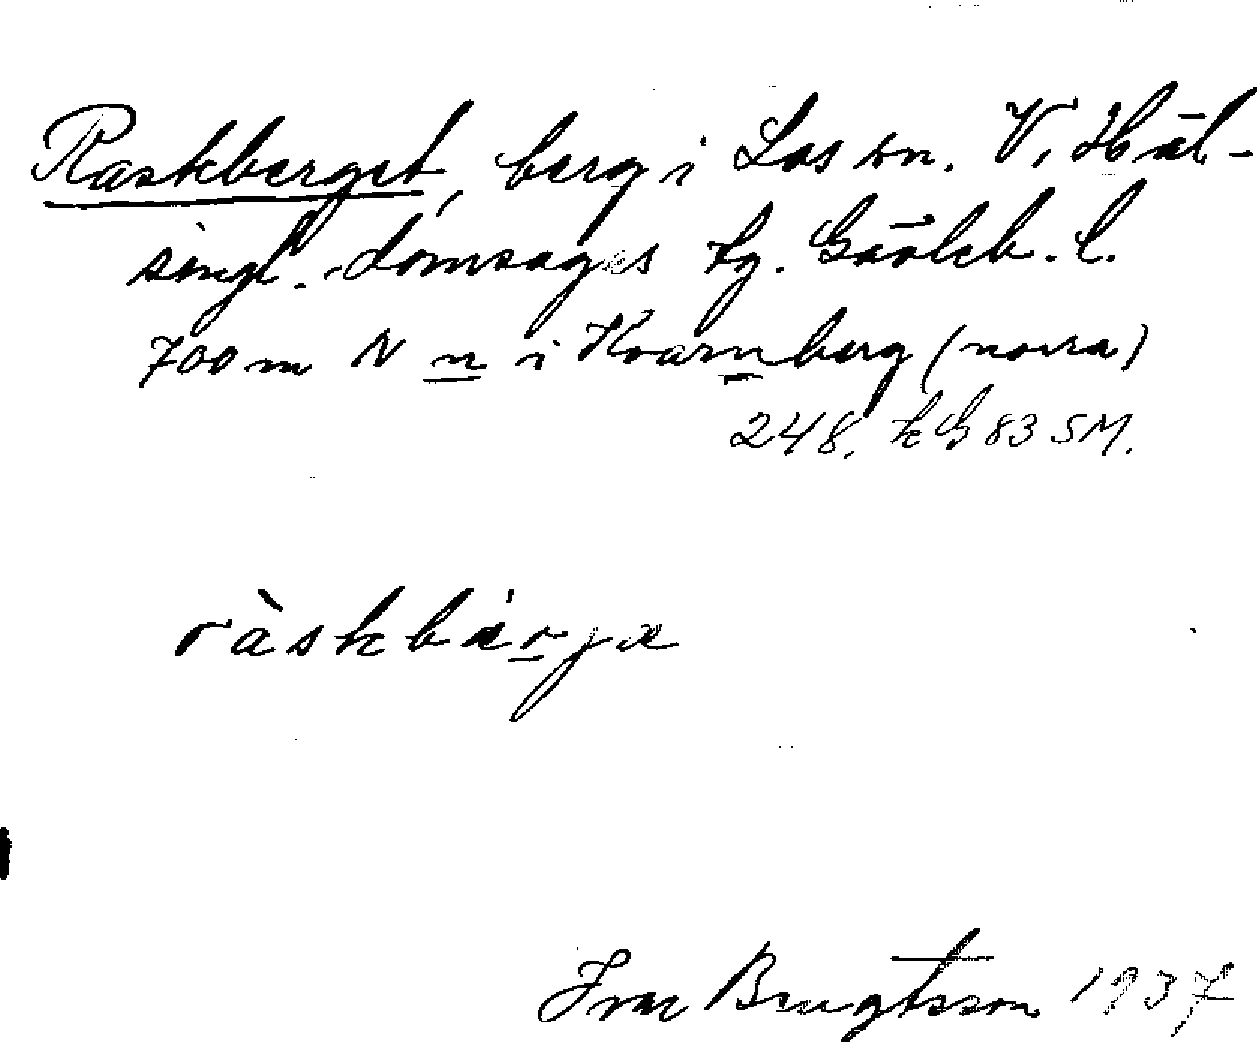 Raskberget, berg i Los sn. V. Häl-
singl. domsagas tg. Gävleb. l.
700 m N n i Kvarnberg (norra)
248. kG 83 SM.
ràskbá​rja
Ivar Bengtsson 1937